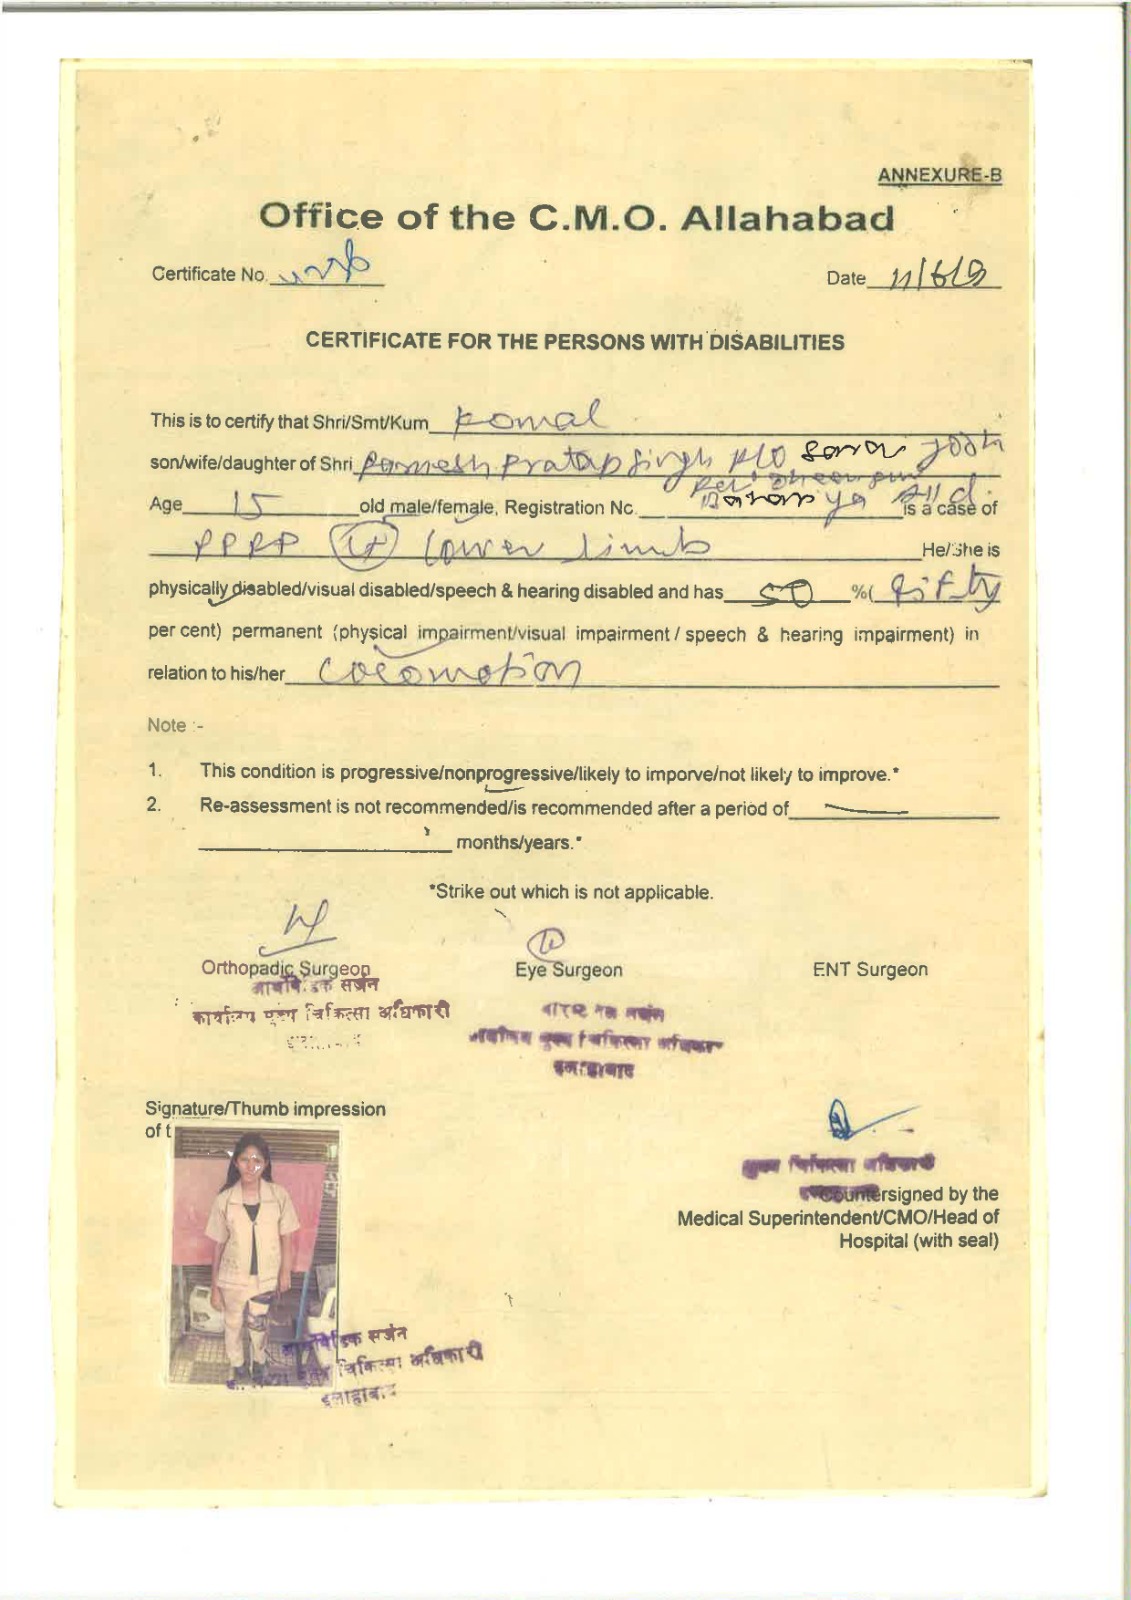 ANNEXURE-B
Office of the C.M.O. Allahabad
Certificate No.
Date 11/6/
CERTIFICATE FOR THE PERSONS WITH DISABILITIES
This is to certify that Shri/Smt/Kum Komal
son/wife/daughter of Shri Ramesh Pratap Singh R/O
Age 15 old male/female, Registration No. is a case of
PPRP Lower limb He/She is
physically disabled/visual disabled/speech & hearing disabled and has 50 %( fifty
per cent) permanent (physical impairment/visual impairment / speech & hearing impairment) in
relation to his/her Locomotion
Note :-
1. This condition is progressive/nonprogressive/likely to imporve/not likely to improve.*
2. Re-assessment is not recommended/is recommended after a period of
months/years.*
*Strike out which is not applicable.
Orthopadic Surgeon Eye Surgeon ENT Surgeon
सर्जन
कार्यालय मुख्य चिकित्सा अधिकारी
मुख्य चिकित्सा
इलाहाबाद
Signature/Thumb impression
of t
मुख्य चिकित्सा अधिकारी
Countersigned by the
Medical Superintendent/CMO/Head of
Hospital (with seal)
सर्जन
चिकित्सा अधिकारी
इलाहाबाद